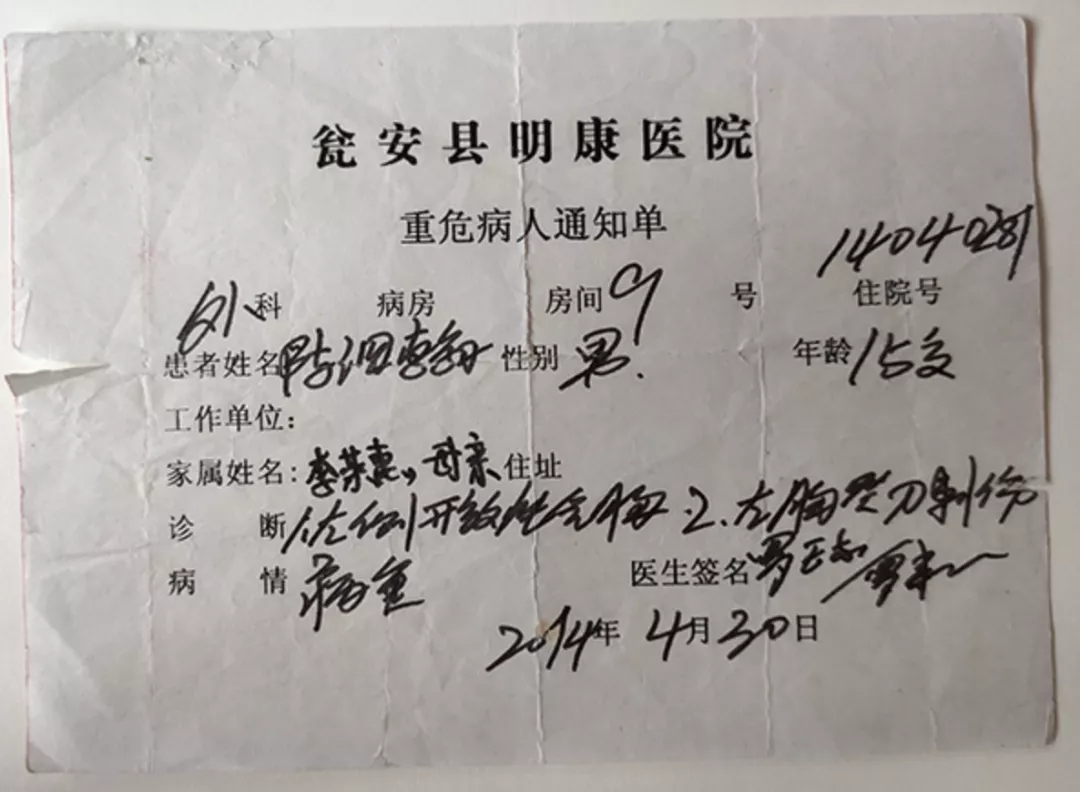 瓮安县明康医院
重危病人通知单
14040281
外科 病房 房间 9 号 住院号
患者姓名 陈泗翰 性别 男. 年龄 15岁
工作单位：
家属姓名：李荣惠，母亲 住址
诊断 1、左侧开放性气胸 2、左胸壁刀刺伤
病情 病重 医生签名 罗
2014年4月30日